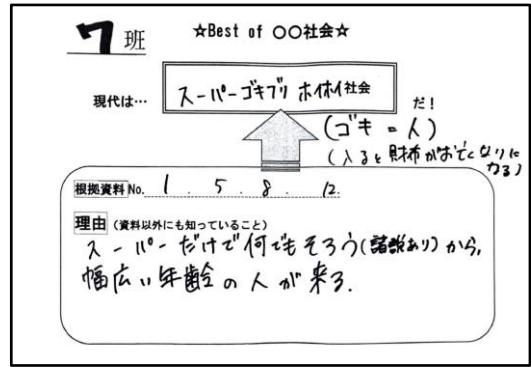 7班
☆Best of 〇〇社会☆
現代は…
スーパーゴキブリホイホイ社会
だ!
(ゴキ=人)
(入ると財布がお亡くなりに
なる)
根拠資料No. 1. 5. 8. 12.
理由(資料以外にも知っていること)
スーパーだけで何でもそろう(諸説あり)から,
幅広い年齢の人が来る.